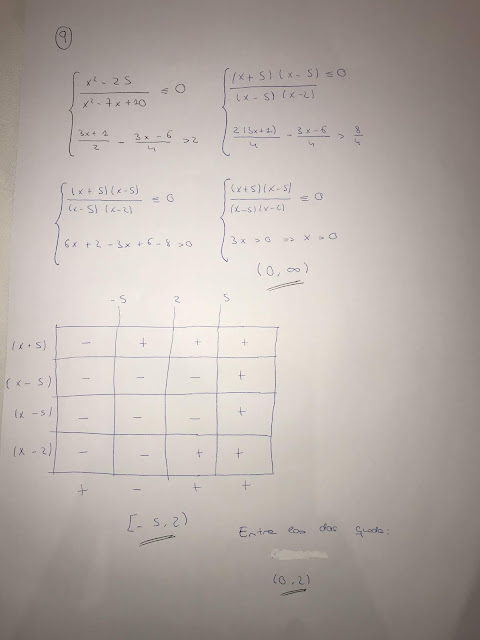 9
x² - 25 / x² - 7x + 10 ≤ 0
3x + 1 / 2 - 3x - 6 / 4 > 2
(x + 5) (x - 5) / (x - 5) (x - 2) ≤ 0
2(3x+1) / 4 - 3x - 6 / 4 > 8 / 4
(x + 5) (x - 5) / (x - 5) (x - 2) ≤ 0
6x + 2 - 3x + 6 - 8 > 0
(x + 5) (x - 5) / (x - 5) (x - 2) ≤ 0
3x > 0 => x > 0
(0, ∞)
-5 2 5
(x + 5) - + + +
(x - 5) - - - +
(x - 5) - - - +
(x - 2) - - + +
+ - + +
[-5, 2)
Entre las dos queda:
(0, 2)